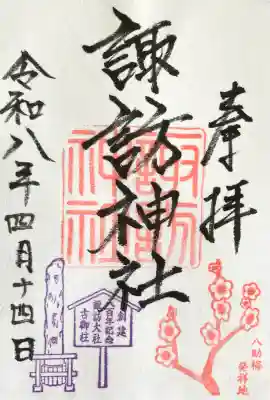 奉拝
諏訪神社
令和八年四月十四日
諏訪神社
創建
百年記念
諏訪大社
古御柱
八助梅
発祥地